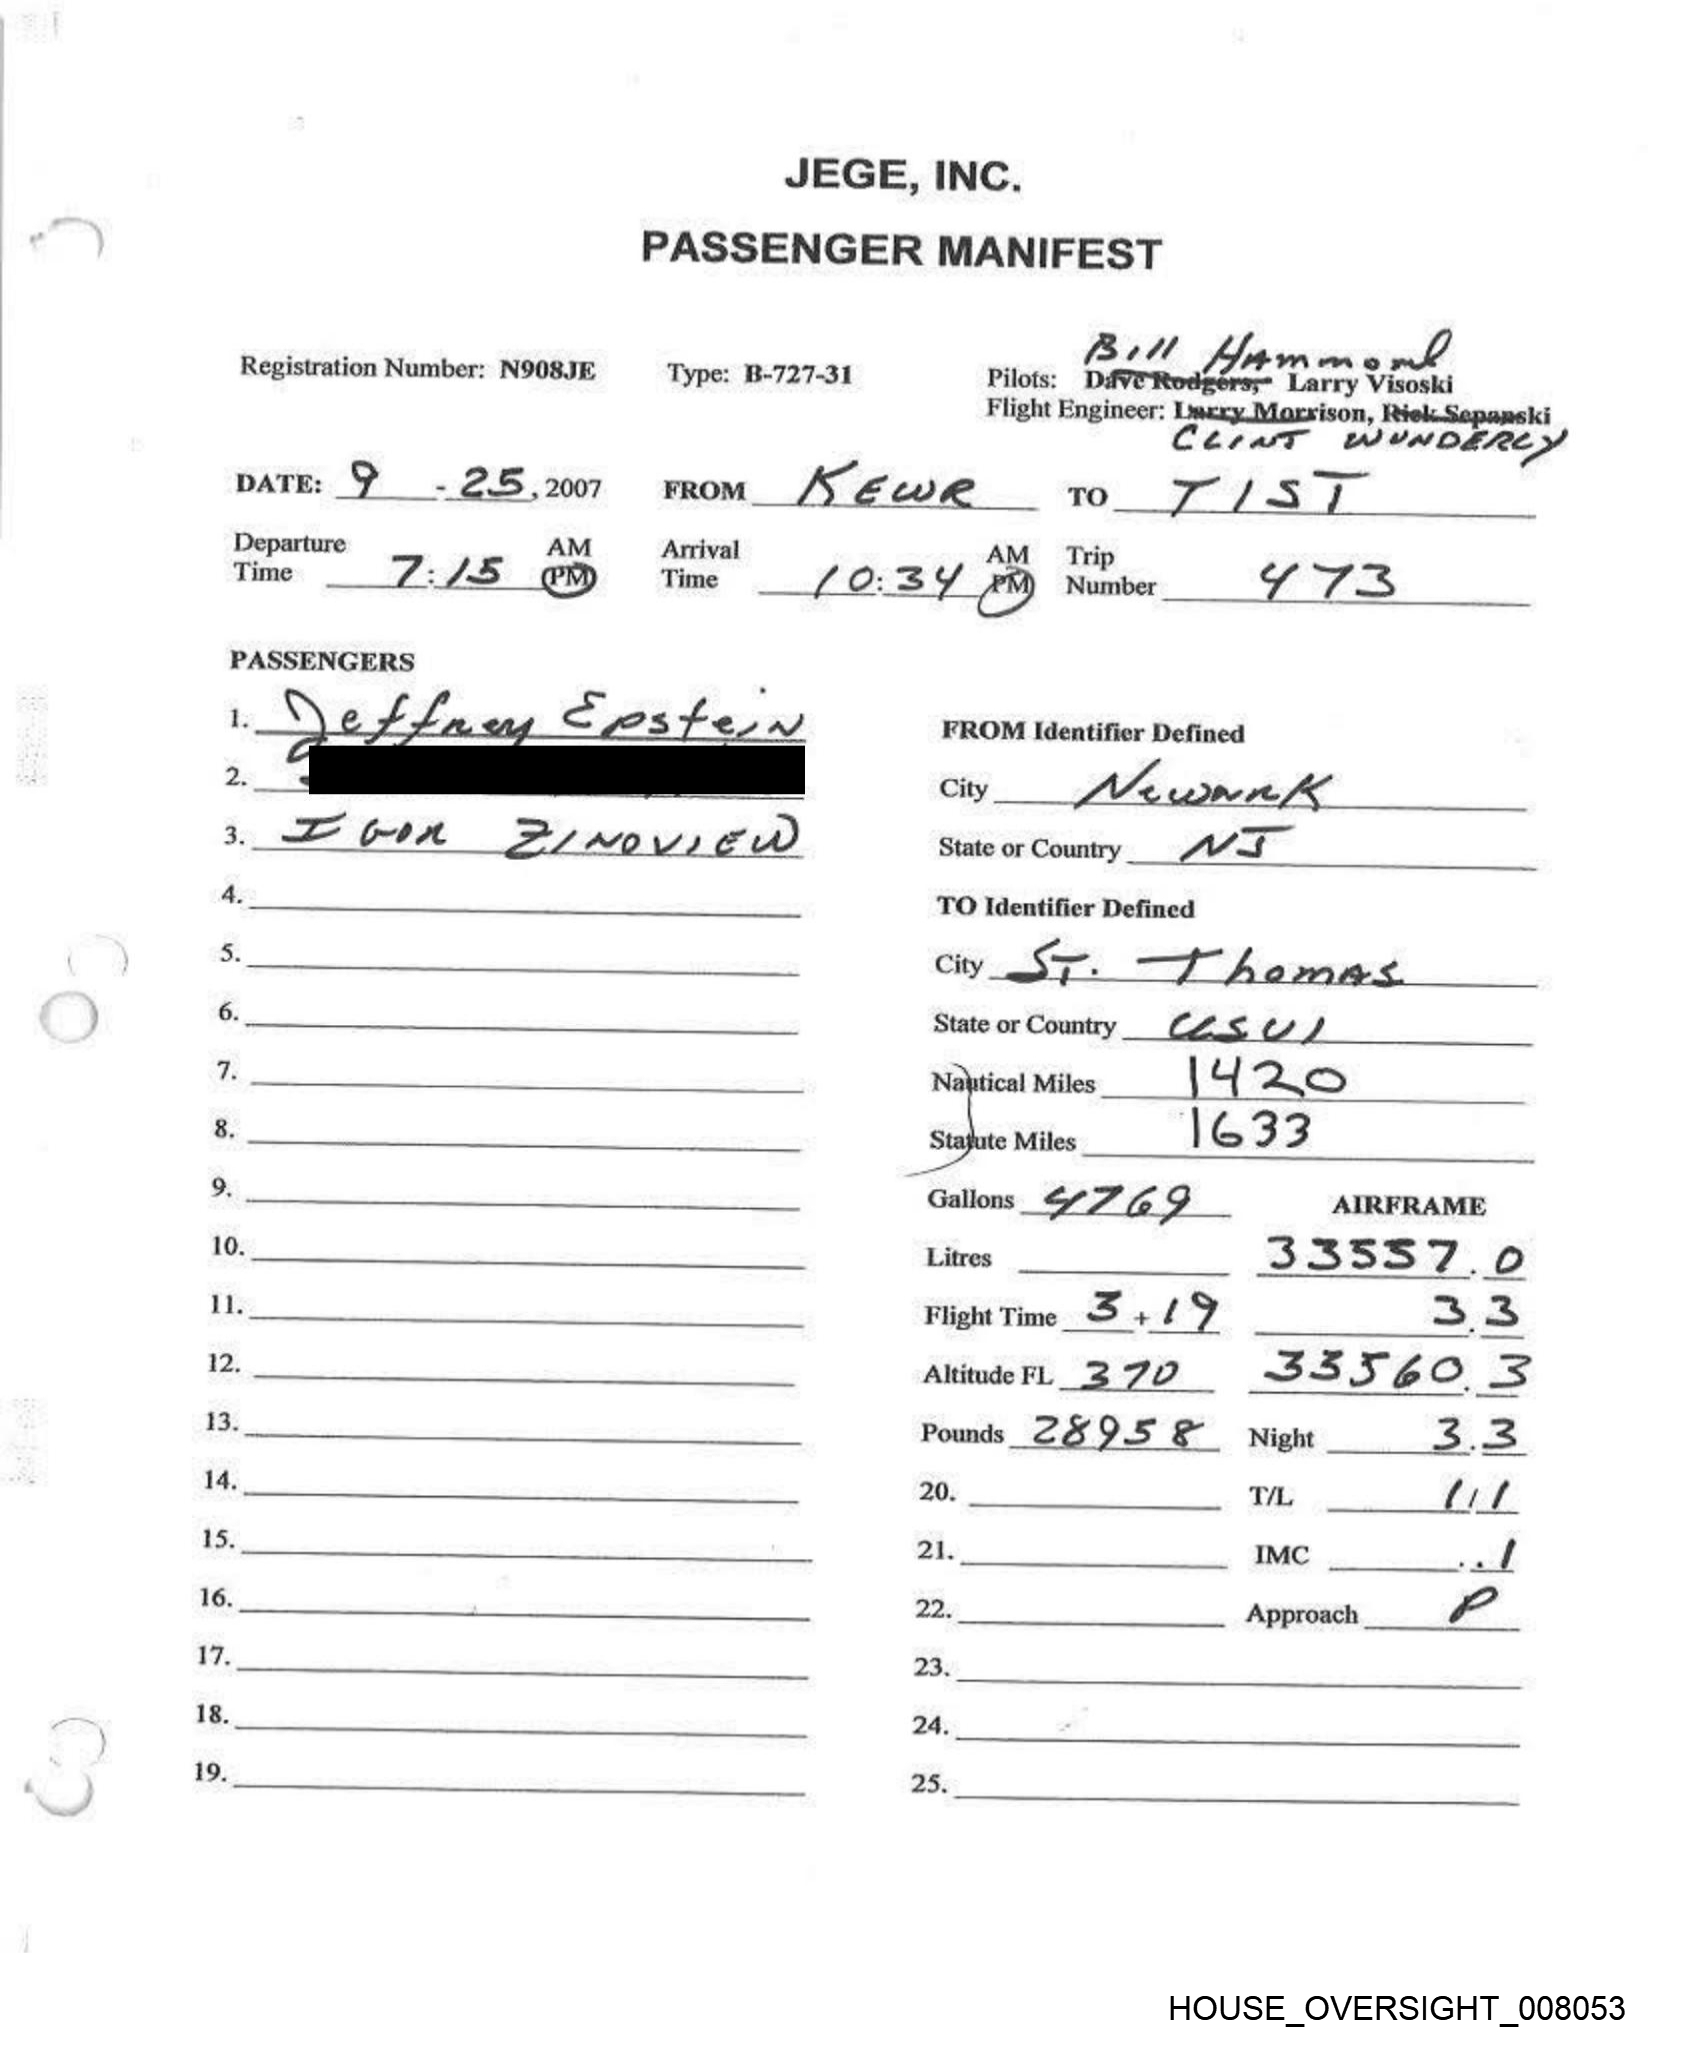 JEGE, INC.
PASSENGER MANIFEST
Bill Hammond
Registration Number: N908JE Type: B-727-31 Pilots: Dave Rodgers, Larry Visoski
Flight Engineer: Larry Morrison, Rick Sepanski
CLINT WUNDERLY
DATE: 9 - 25, 2007 FROM KEWR TO TIST
Departure Time 7:15 AM PM Arrival Time 10:34 AM PM Trip Number 473
PASSENGERS
1. Jeffrey Epstein
2.
3. IGOR ZINOVIEW
4.
5.
6.
7.
8.
9.
10.
11.
12.
13.
14.
15.
16.
17.
18.
19.
FROM Identifier Defined
City Newark
State or Country NJ
TO Identifier Defined
City ST. Thomas
State or Country USVI
Nautical Miles 1420
Statute Miles 1633
Gallons 4769 AIRFRAME
Litres 33557.0
Flight Time 3+19 3.3
Altitude FL 370 33560.3
Pounds 28958 Night 3.3
20. T/L 1/1
21. IMC .1
22. Approach P
23.
24.
25.
HOUSE_OVERSIGHT_008053